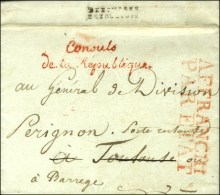 Consuls
de la République
AFFRANCHI
PAR ETAT
au Général de Division
Perignon. Poste restante
a Toulouse ou
à Barrege